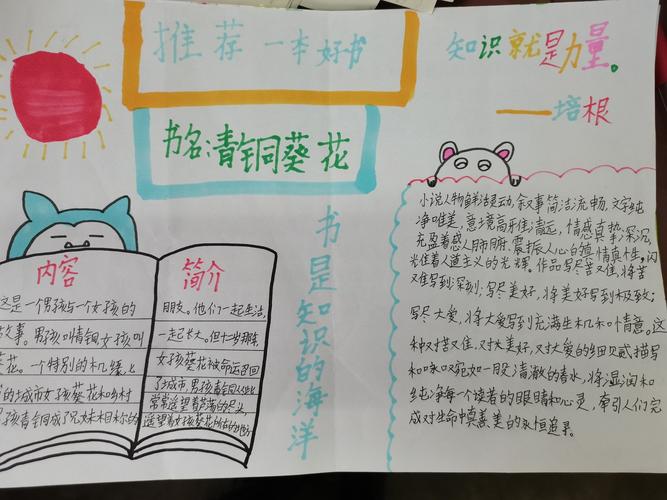 推荐一本好书
知识就是力量。
——培根
书名:青铜葵花
书是知识的海洋
内容
这是一个男孩与一个女孩的
故事。男孩叫青铜女孩叫
葵花。一个特别的机缘上
的城市女孩葵花和乡村
男孩青铜成了兄妹相称的
简介
朋友。他们一起生活,
一起长大。但十二岁那年
女孩葵花被命运召回
了城市,男孩青铜从此
常常遥望着芦荡的尽头
遥望着女孩葵花所在的地方
小说人物鲜活灵动,叙事简洁流畅,文字纯
净唯美,意境高雅清远,情感真挚深沉,
充盈着感人肺腑、震撼人心的
光住着人道主义的光辉。作品写尽苦难,将苦
难写到深刻;写尽美好,将美好写到极致;
写尽大爱,将大爱写到充满生机和情意。这
种对苦难,对大美好,对大爱的细贝贰描写
和咏叹宛如一股清澈的春水,将湿润和
纯净每个读者的眼睛和心灵,牵引人们完
成对生命中真善美的永恒追寻。